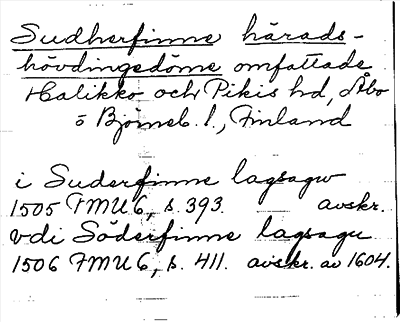 Sudherfinne härads-
hövdingedöme omfattade
Halikko och Pikis hd, Åbo
o Björneb. l., Finland
i Suderfinne lagsagw
1505 FMU 6, s. 393. avskr.
vdi Söderfinne lagsagu
1506 FMU 6, s. 411. avskr. av 1604.